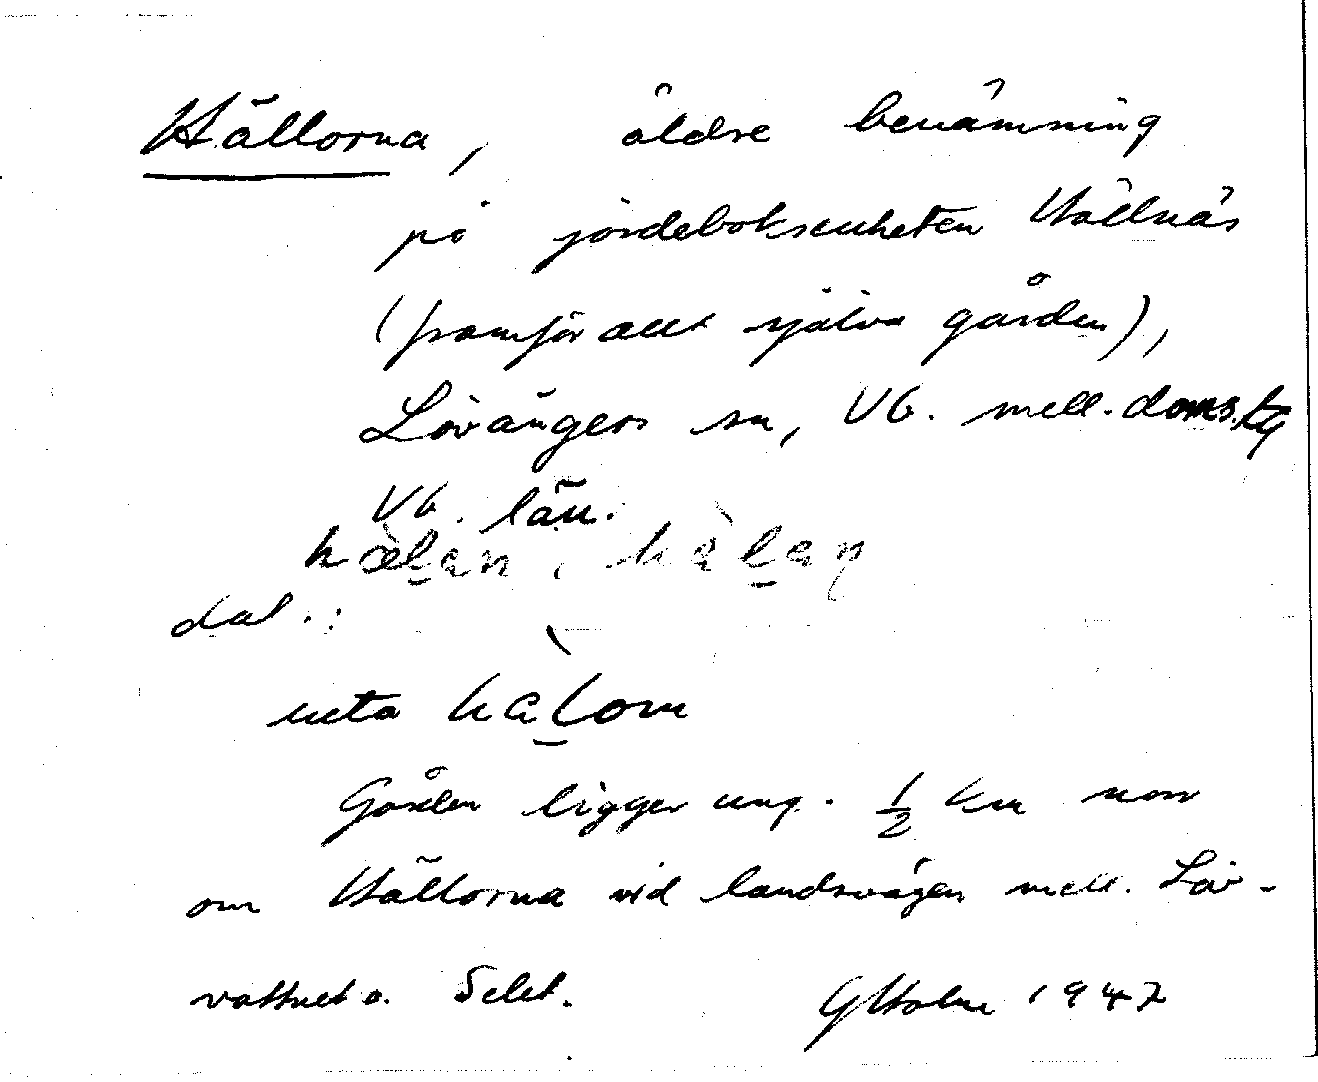 Hällorna, äldre benämning
på jordeboksenheten Hällnäs
(framför allt själva gården),
Lövångers sn, Vb. mell. doms.tg
Vb. län.
hæ̀l̠an, hàl̠aņ
dat.:
uta hàl̠om
Gården ligger ung. ½ km norr
om Hällorna vid landsvägen mell. Löv-
vattnet o. Selet.
G Holm 1947